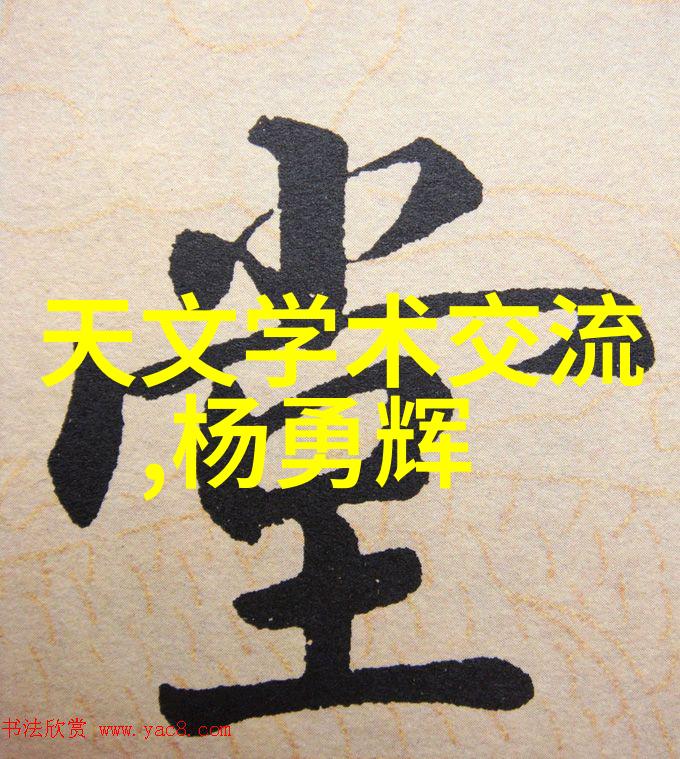 堂
天文学术交流
,杨勇辉
书法欣赏 www.yac8.com